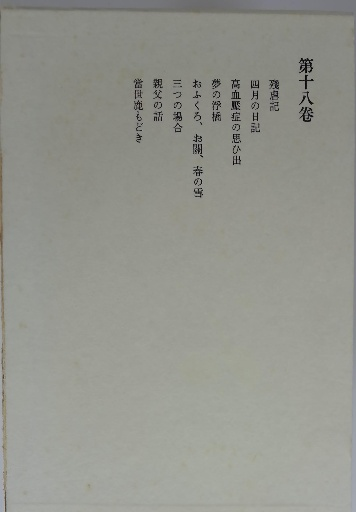 第十八卷
殘虐記
四月の日記
高血壓症の思ひ出
夢の浮橋
おふくろ、お關、春の雪
三つの場合
親父の話
當世鹿もどき